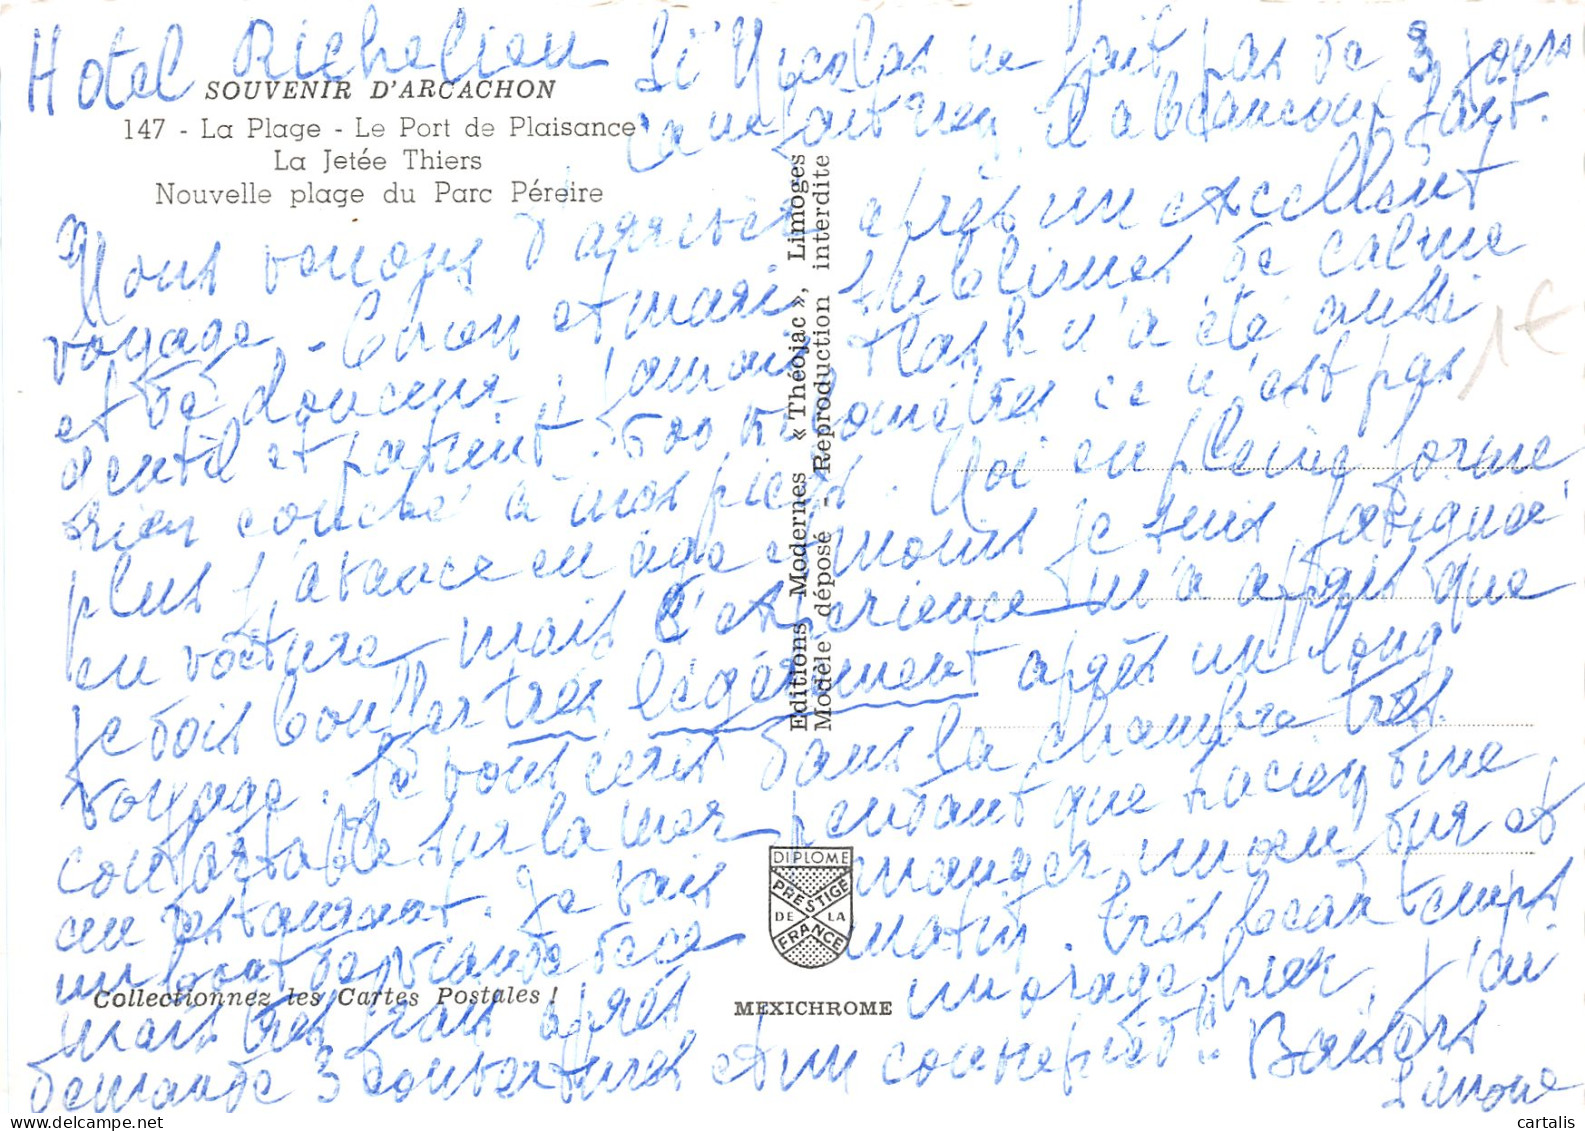 Hotel Richelieu
Si Nicolas ne fait pas de 3 jours
ça ne fait rien, il a beaucoup fait.
SOUVENIR D'ARCACHON
147 - La Plage - Le Port de Plaisance
La Jetée Thiers
Nouvelle plage du Parc Péreire
Nous venons d'arriver après un excellent
voyage - Chien et mari sublimes de calme
et de douceur, jamais Flash n'a été aussi
gentil et patient. 500 kilomètres ce n'est pas
rien couché à mes pieds. Moi en pleine forme,
plus j'avance en âge et moins je suis fatiguée
en voiture mais l'expérience m'a appris que
je dois bouffer très légèrement après un long
voyage. Je vous écris dans la chambre très
confortable sur la mer pendant que Lucien dine
au restaurant. Je vais manger un œuf dur et
un bout de viande ce matin. Très beau temps
mais très frais après un orage hier, j'ai
demandé 3 couvertures et un couvrepied!! Baisers
Simone
Editions Modernes « Théojac », Limoges
Modèle déposé - Reproduction interdite
DIPLOME
PRESTIGE
DE LA
FRANCE
Collectionnez les Cartes Postales !
MEXICHROME
1€
cartalis